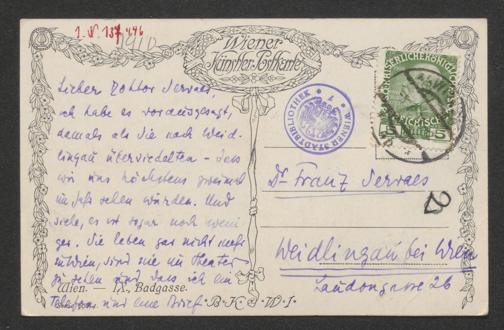 I. N. 137.446
1910
Wiener
Künstler-Postkarte
Lieber Doktor Servaes,
ich habe es vorausgesagt,
damals als Sie nach Weid-
lingau übersiedelten – dass
wir uns höchstens zweimal
im Jahr sehen würden. Und
siehe, es ist sogar noch weni-
ger. Sie leben gar nicht mehr
in Wien, sind nie im Theater
zu sehen und dass ich ein
Telefon und eine Brief
WIENER STADTBIBLIOTHEK
5
Dr Franz Servaes
2
Weidlingau bei Wien
Laudongasse 26
Wien. — IX., Badgasse.
B·K·W·I·